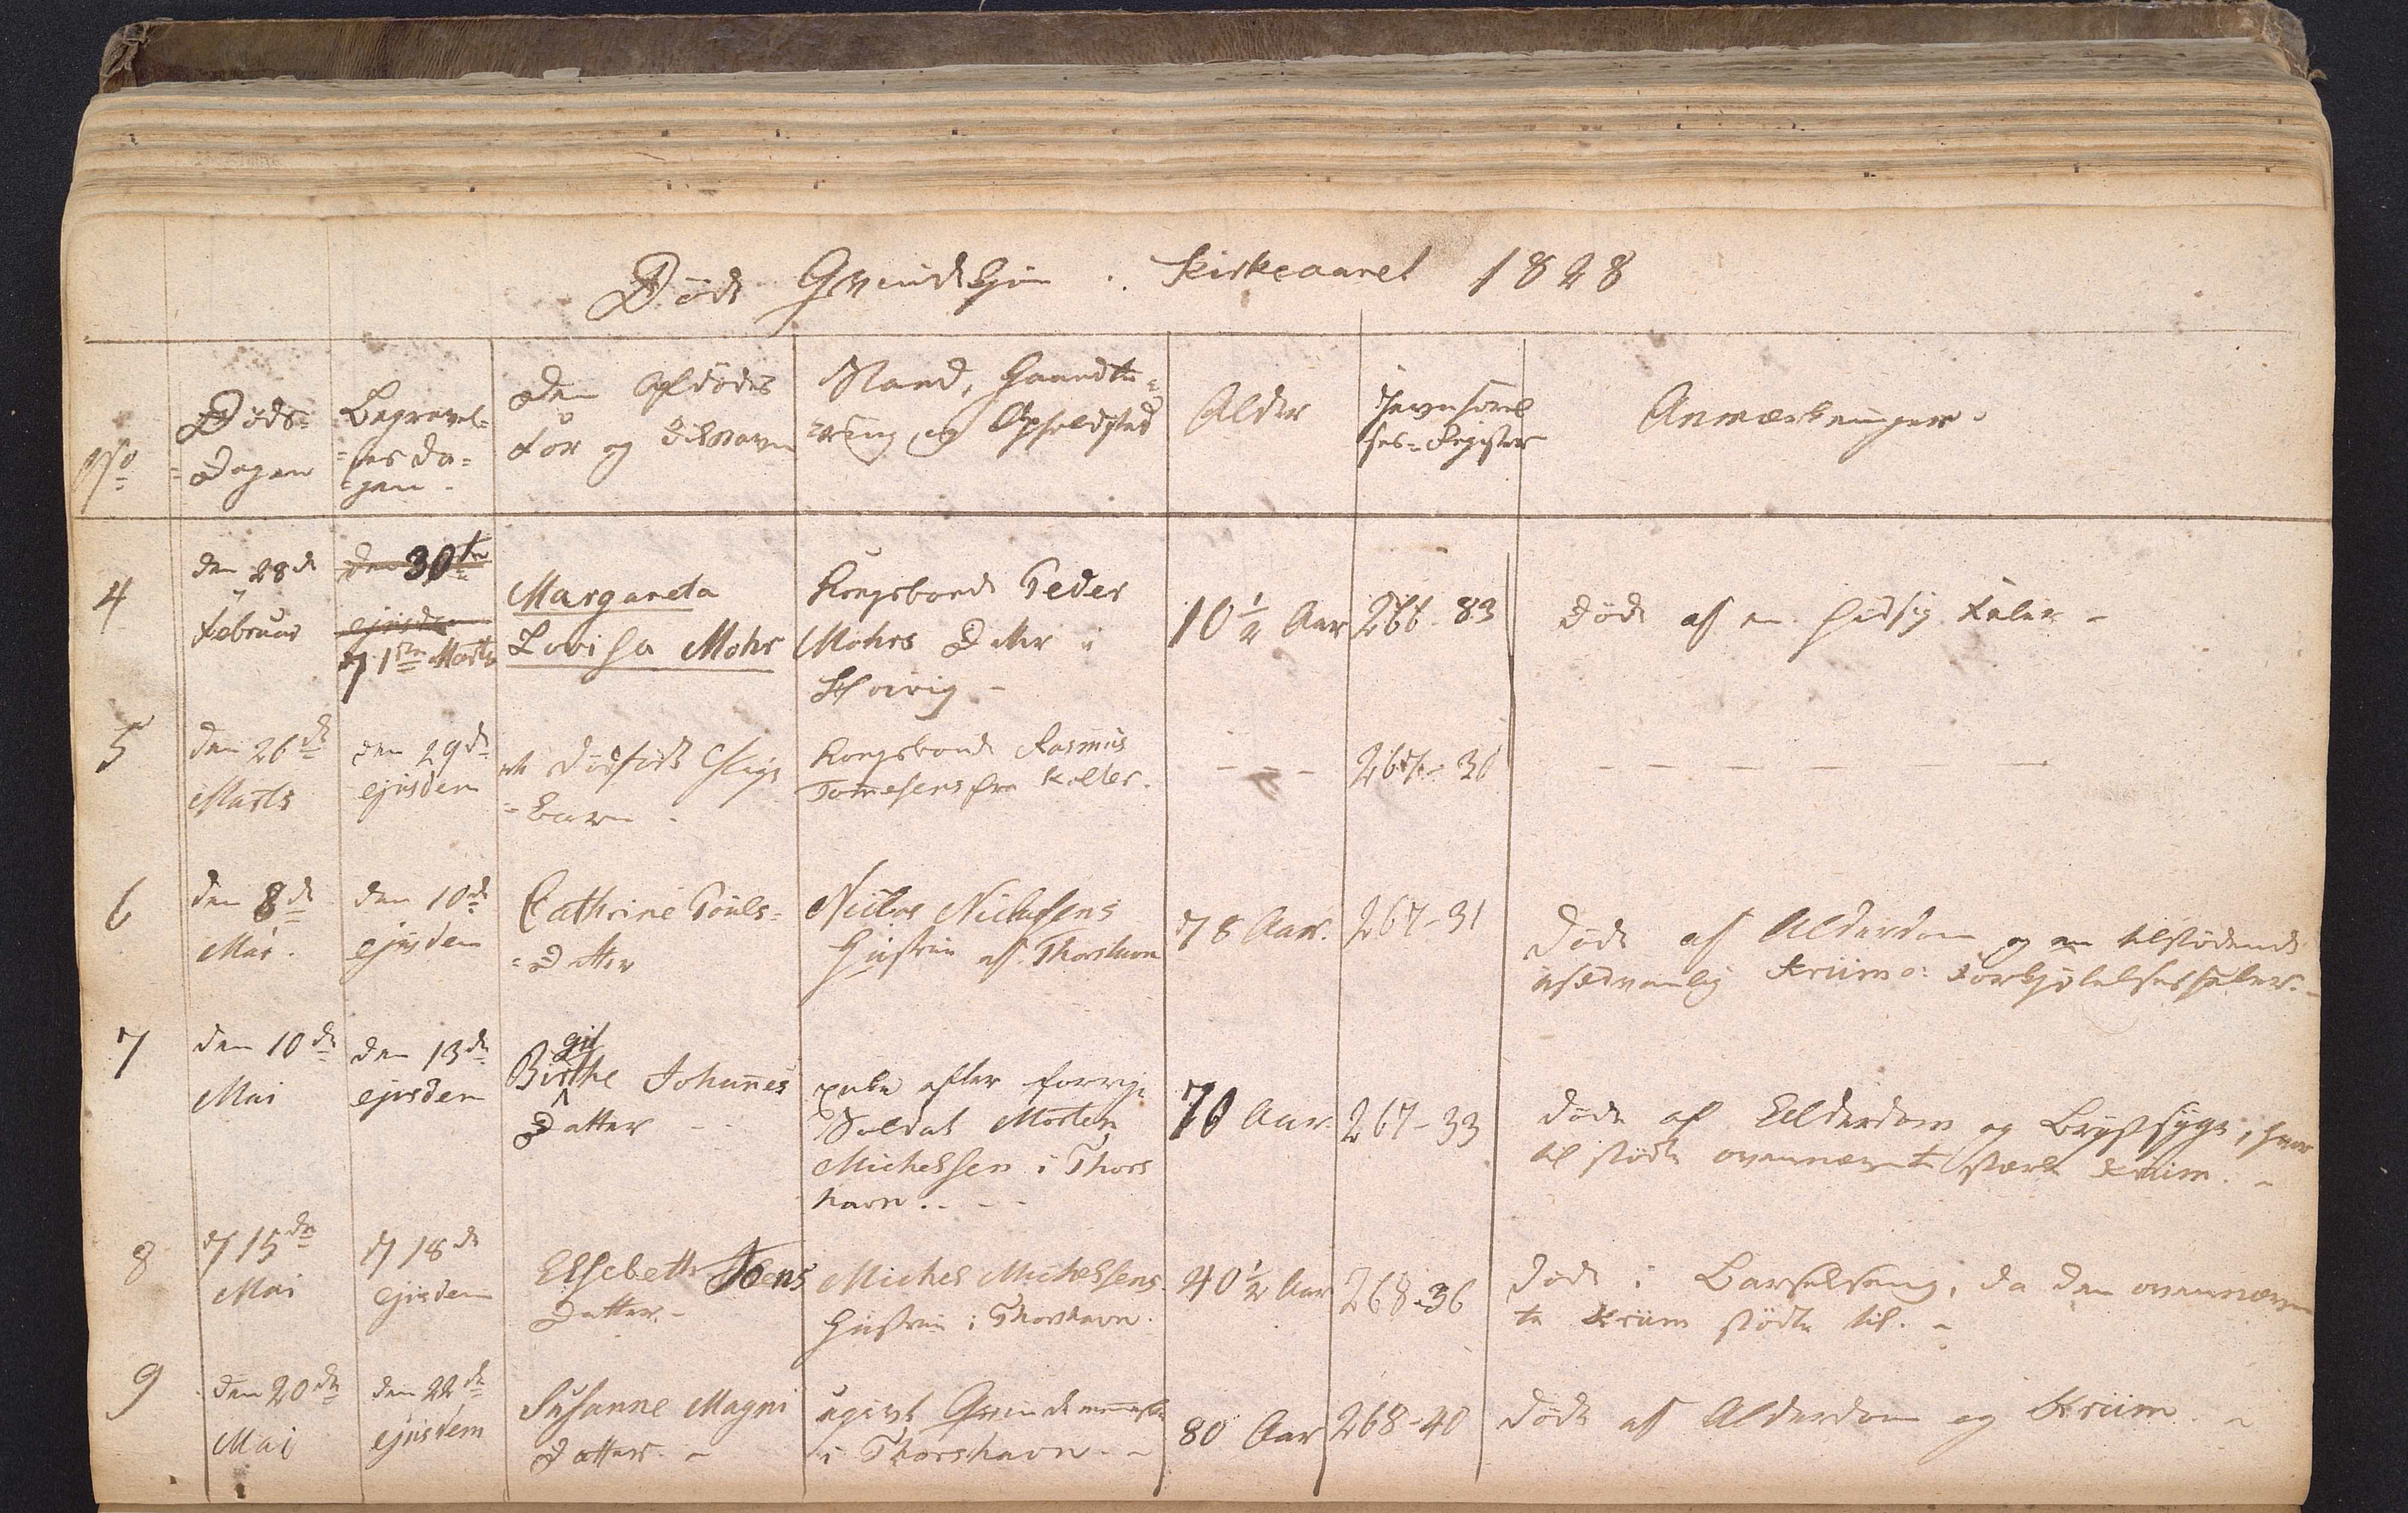 Døde Qvindekjøn. Kirkeaaret 1828
No
Døds-
Dagen
Begravel-
ses Da-
gen
Den Afdødes
For og Tilnavn
Stand, Haandte-
ring og Opholdsted
Alder
Jevnførel
ses-Register
Anmærkninger.
4
den 28de
Februar
den 30te
ejusdem
d 1ste Marts
Margareta
Lovisa Mohr
Kongsbonde Peder
Mohrs Datter i
Hovig -
10 1/2 Aar
266-83
døde af en hidsig Feber -
5
den 26de
Marts
den 29de
ejusdem
et dødfødt Pige
-Barn.
Kongsbonde Rasmus
Joensens fra Kolter.
- - -
267-30
- - - - - -
6
den 8de
Mai.
den 10de
ejusdem
Cathrine Pouls-
-Datter
Niclas Niclasens
Hustrue af Thorshavn
78 Aar.
267-31
døde af Alderdom og en tilstødende
usædvanlig Kriim o: Forkjølelsesfeber. -
7
den 10de
Mai
den 13de
ejusdem
git
Birthe Johannes
Datter - -
Enke efter forrige
Soldat Morten
Michelsen i Thors
havn. - -
70 Aar.
267-33
døde af Ælderdom og Brystsyge, hvor
til stødte ovennævnte stærke Kriim. -
8
d 15de
Mai
d 18de
ejusdem
Elsebeth Joens
Datter. -
Michel Michelsens
Hustrue i Thorshavn.
40 1/2 Aar
268-36
døde i Barselseng, da den ovennævn
te Kriim stødte til. -
9
den 20de
Mai
den 22de
ejusdem
Susanne Magni
Datter. -
ugivt Qvindemenneske
i Thorshavn. -
80 Aar
268-40
døde af Alderdom og Kriim. -